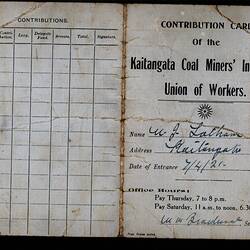 CONTRIBUTIONS.
Contribution. Levy. Delegate Fund. Arrears. Total. Signature.
CONTRIBUTION CARD
Of the
Kaitangata Coal Miners' In
Union of Workers.
Name W. J. Latham
Address Kaitangata
Date of Entrance 7/4/21.
Office Hours:
Pay Thursday, 7 to 8 p.m.
Pay Saturday, 11 a.m. to noon. 6.30